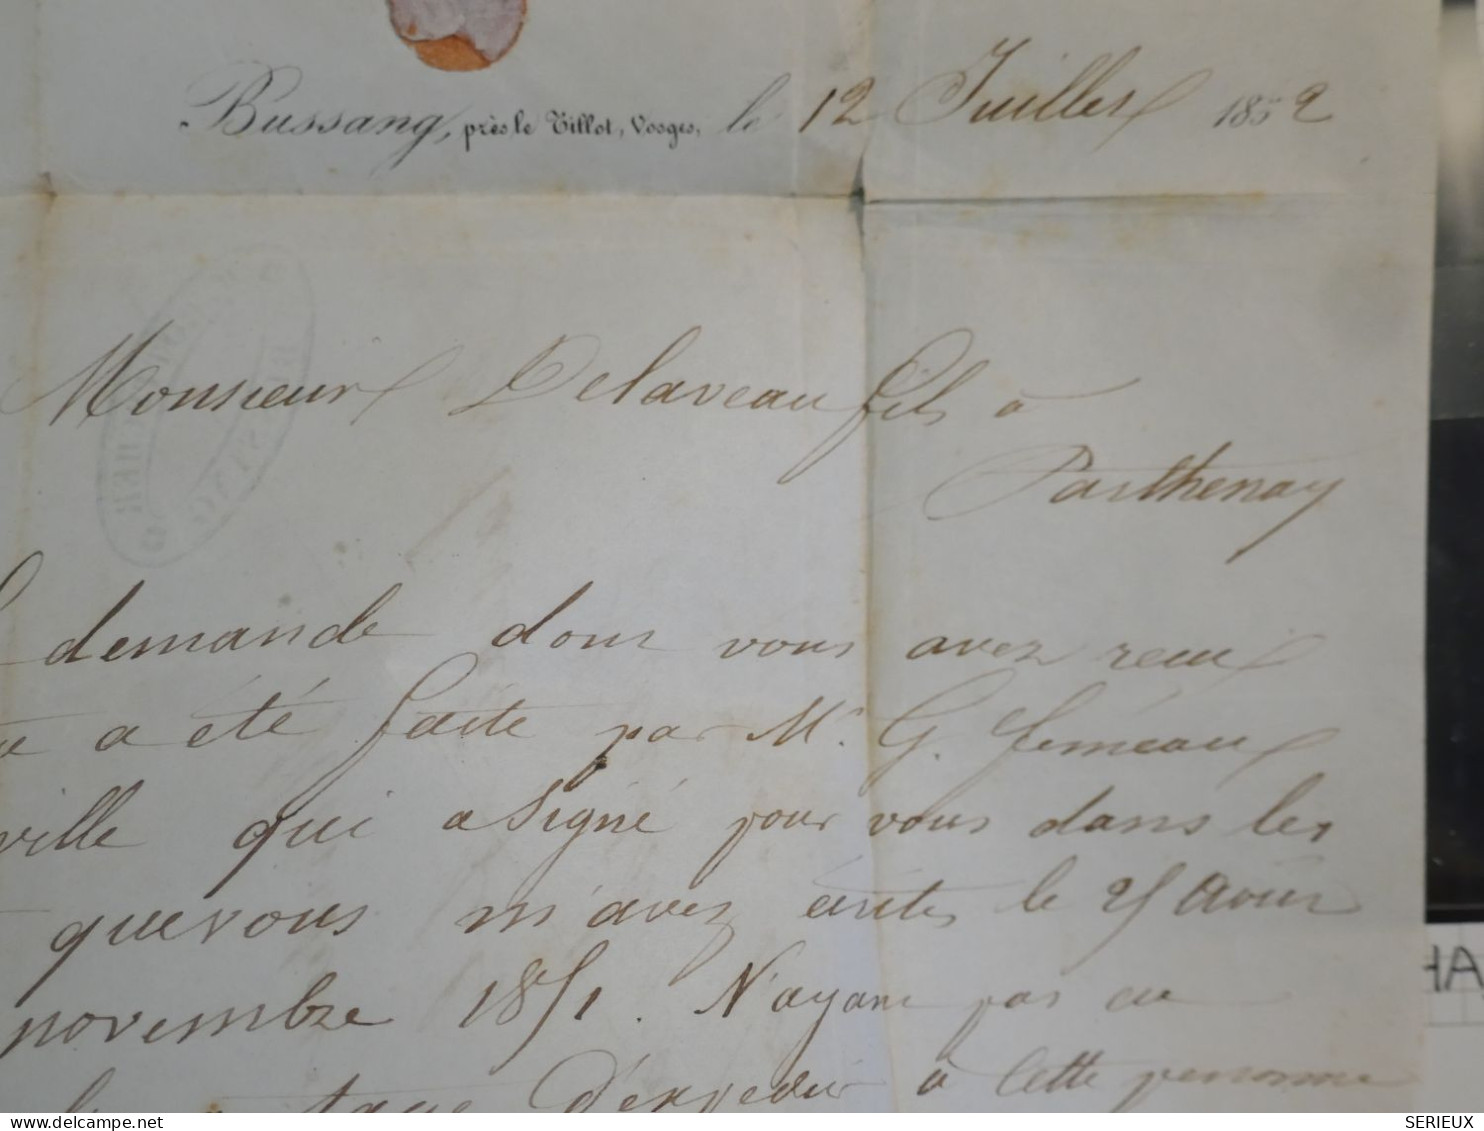 Bussang, près le Tillot, Vosges, le 12 Juillet 1852
Monsieur Delaveau fils à
Parthenay
demande dont vous avez recu
a été faite par Mr. G. Féméaux
ville qui a signé pour vous dans les
que vous m'avez écrites le 25 Aout
novembre 1851. N'ayant pas eu
d'expédier à cette personne
HA
SERIEUX